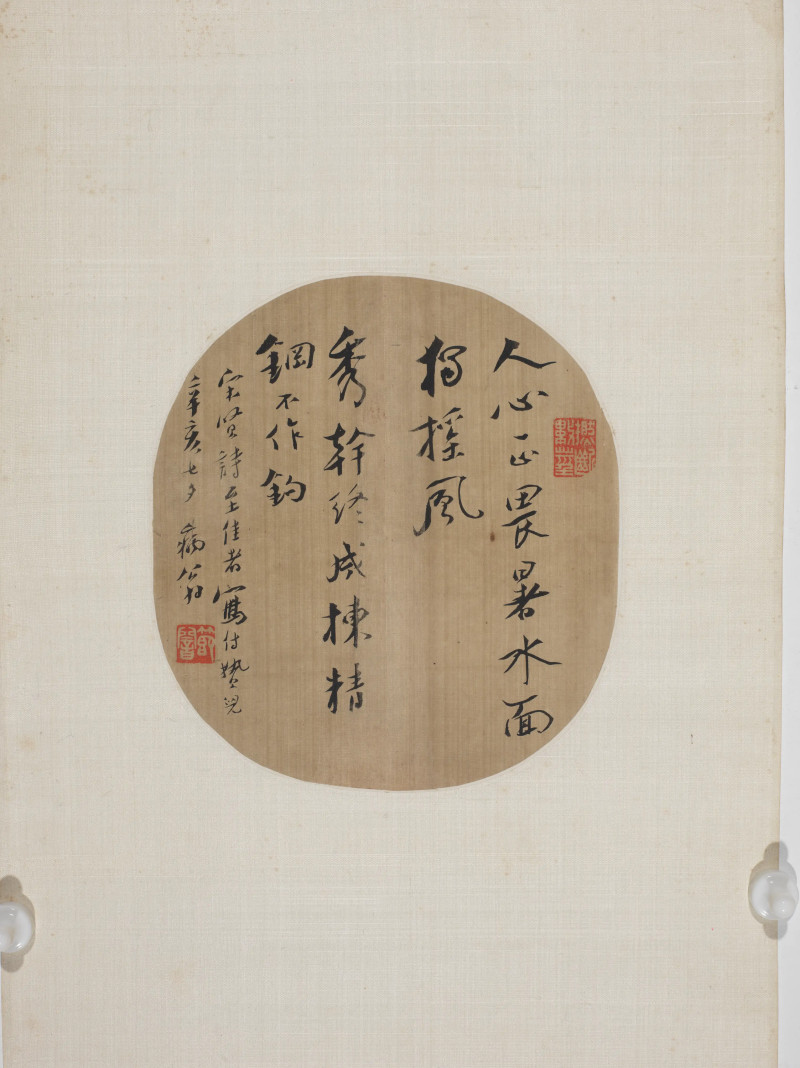 人心正畏暑水面
獨搖風
秀幹終成棟精
鋼不作鉤
宋賢詩至佳者寫付贄兒
辛亥七夕 病翁